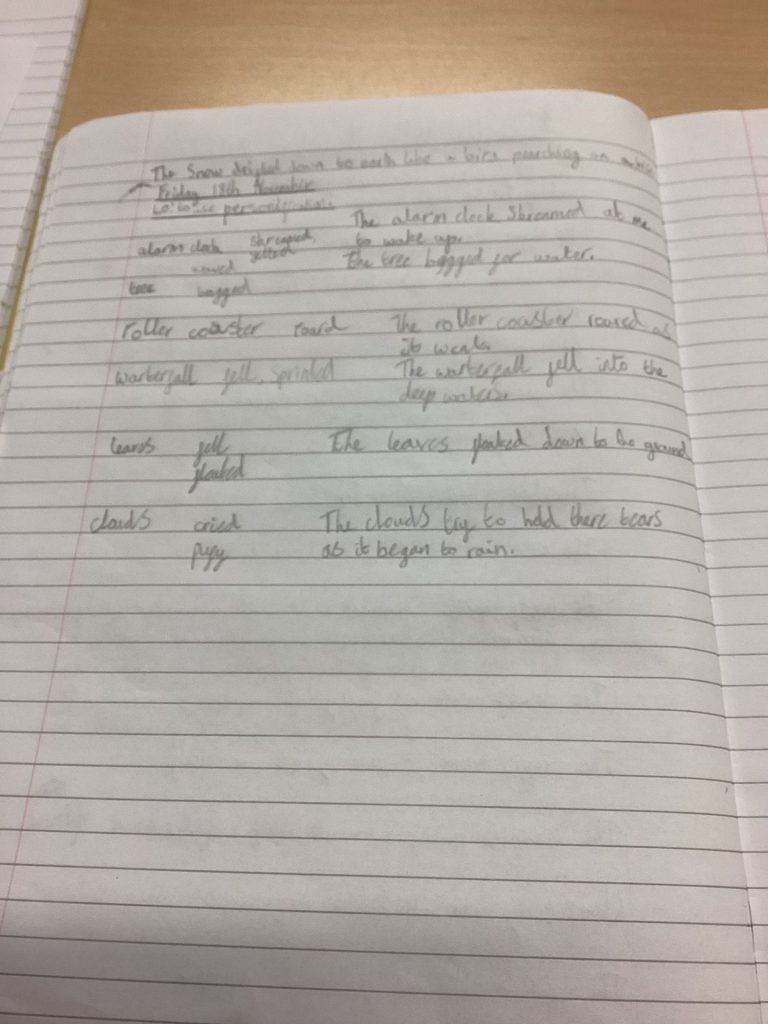 The Snow drifted down to earth like a bird perching on a
Friday 18th November
Lo: to use personification
alarm clock shreaped, The alarm clock Shreamed at me
yelled to wake up.
tree begged The tree begged for water.
roller coaster roard The roller coaster roared as
it went.
warterfall fell, sprinted The warterfall fell into the
deep waters.
leavs fell The leaves floated down to the ground
floated
clouds cried The clouds try to hold there tears
puff as it began to rain.